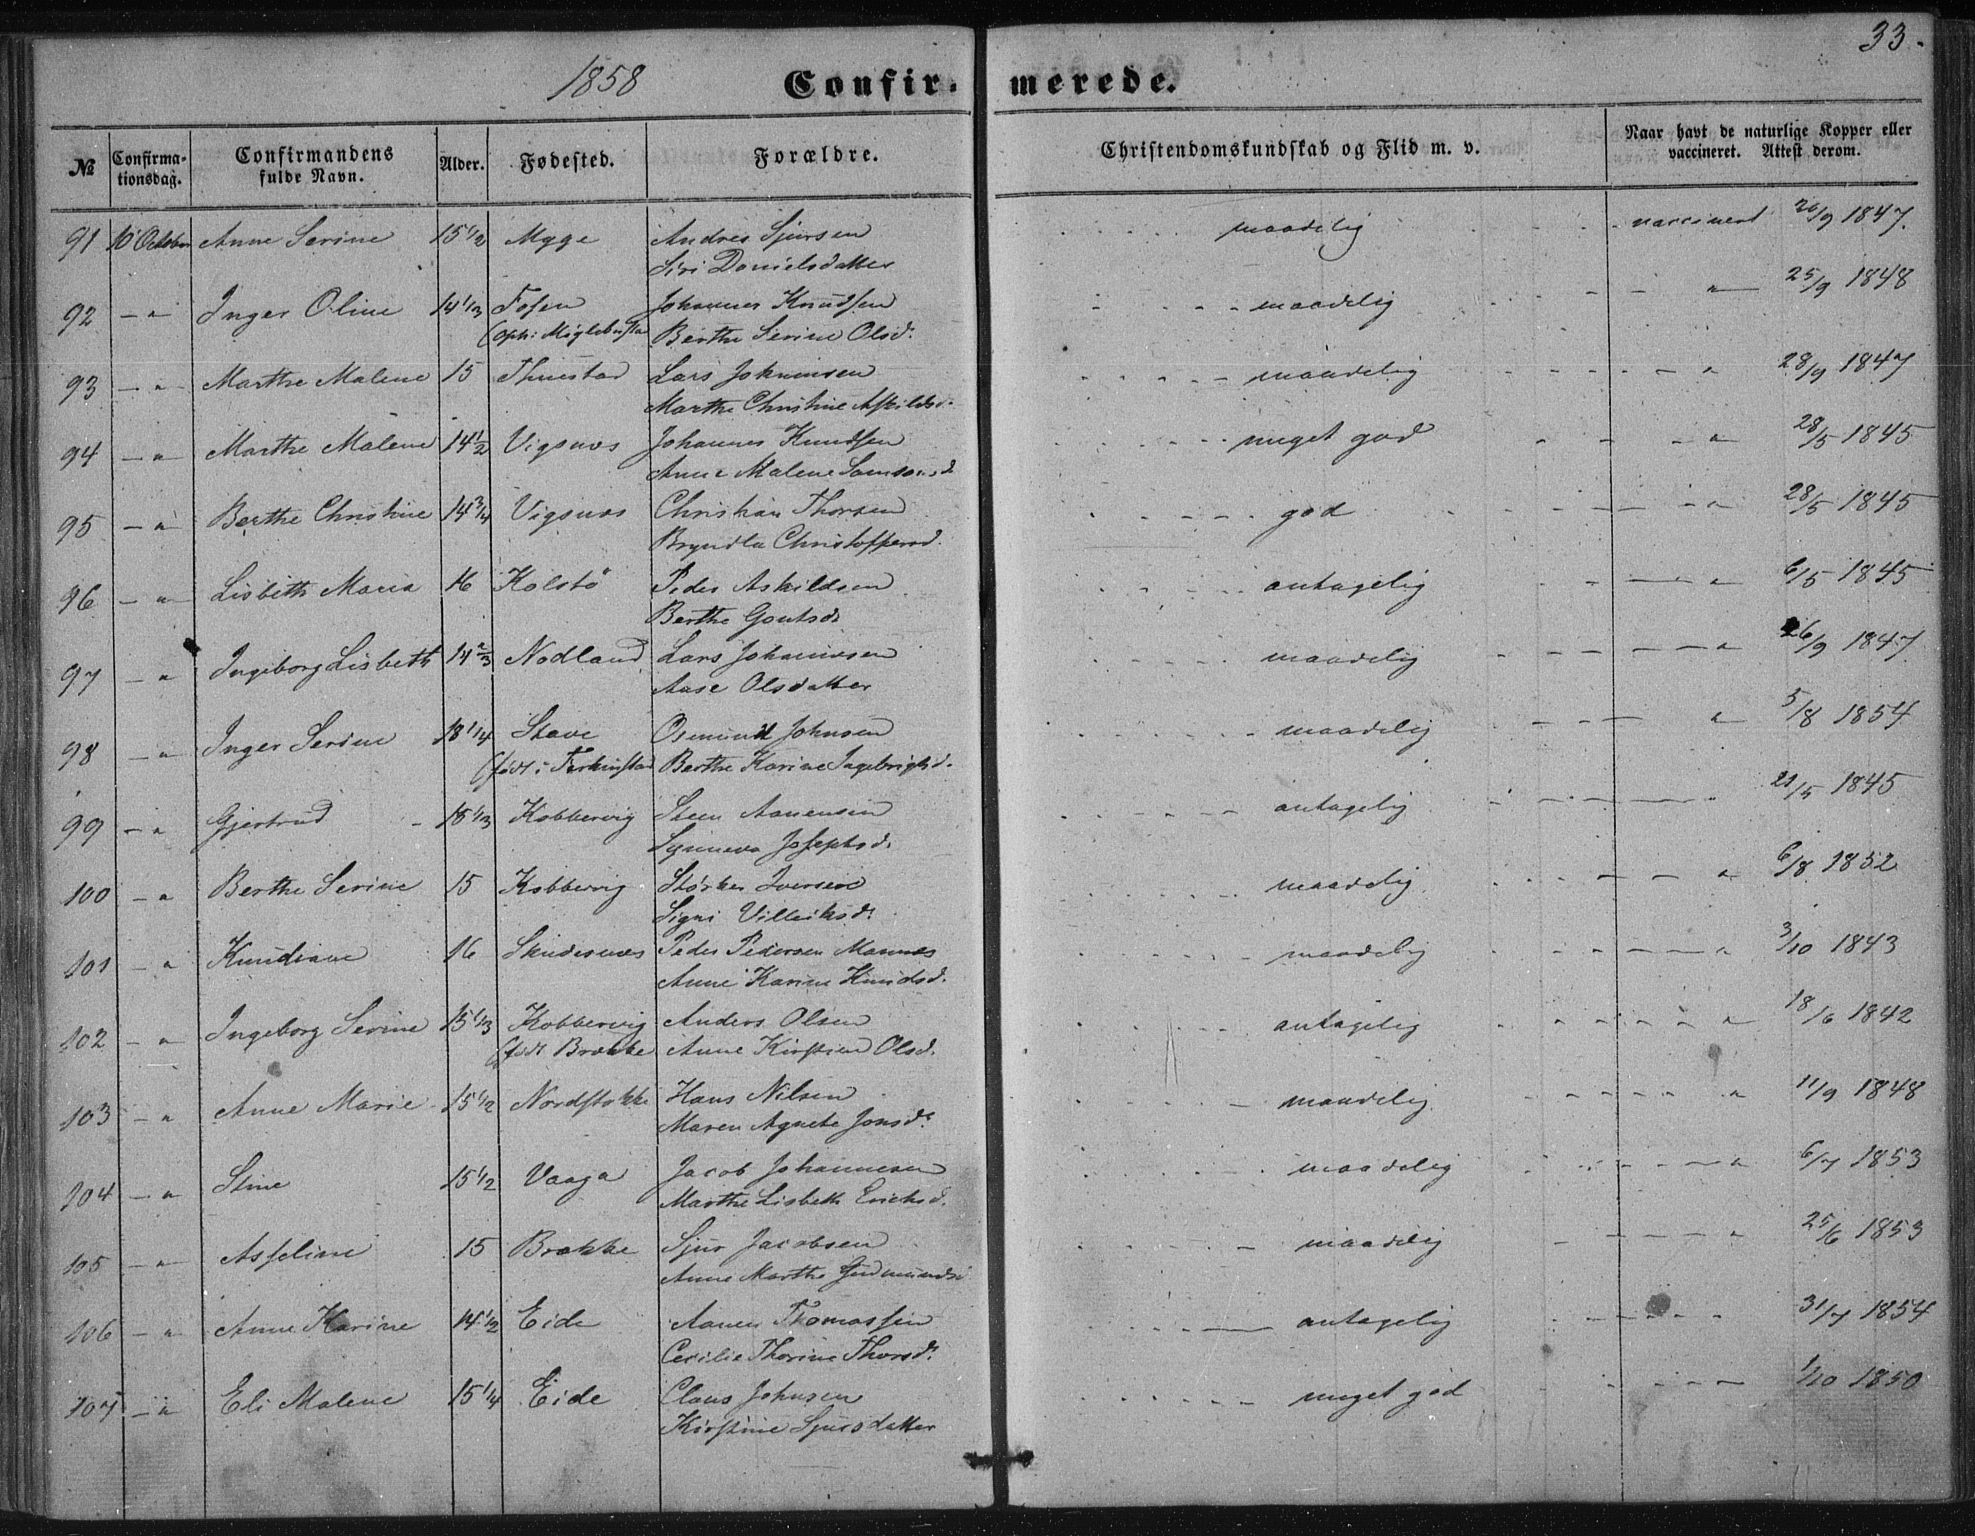 33.
1858 Confirmerede.
№ Confirmationsdag. Confirmandens fulde Navn. Alder. Fødested. Forældre. Christendomskundskab og Flid m. v. Naar havt de naturlige Kopper eller vaccineret. Attest derom.
91 10 October Anne Serine 15 1/2 Myge Andres Sjursen maadelig vaccineret 26/9 1847.
Siri Danielsdatter
92 — " Inger Oline 14 1/3 Fosen Johannes Knudsen maadelig " 25/9 1848
Berthe Serine Olsd.
93 — " Marthe Malene 15 Thuestad Lars Johannesen maadelig " 28/9 1847
Marthe Christine Askildsd.
94 — " Marthe Malene 14 1/2 Vigsnes Johannes Knudsen meget god " 28/5 1845
Anne Malene Samsonsd
95 — " Berthe Christine 14 3/4 Vigsnes Christian Thorsen god " 28/5 1845
Bryndla Christoffersd.
96 — " Lisbeth Maria 16 Kolstö Peder Askildsen antagelig " 6/5 1845
Berthe Gautsd.
97 — " Ingeborg Lisbeth 14 2/3 Nodland Lars Johannesen maadelig " 26/9 1847
Aase Olsdatter
98 " Inger Serine 18 1/4 Stave Osmund Johnsen maadelig " 5/8 1854
(født i Ferkinstad Berthe Karine Ingebrigtsd.
99 — " Gjertrud 15 1/3 Kobbervig Steen Aanensen antagelig " 21/5 1845
Synneva Josephsd.
100 — " Berthe Serine 15 Kobbervig Störker Iversen maadelig " 6/8 1852
Signi Villeiksd.
101 — " Knudiane 16 Skudesnes Peder Pedersen Mannes maadelig " 3/10 1843
Anne Karine Knudsd.
102 — " Ingeborg Serine 15 1/3 Kobbervig Anders Olsen antagelig " 18/6 1842
(født Brække Anne Kirstine Olsd.
103 — " Anne Marie 15 1/2 Nordstokke Hans Nilsen maadelig " 11/9 1848
Maren Agnete Jonsd.
104 — " Stine 15 1/2 Vaaga Jacob Johannesen maadelig " 6/7 1853
Marthe Lisbeth Ericksd.
105 — " Asseline 15 Brække Sjur Jacobsen maadelig " 25/6 1853
Anne Marthe Gudmundsd
106 — " Anne Karine 14 1/2 Eide Aanen Thomassen antagelig " 31/7 1854
Cecilie Thorine Thorsd.
107 — " Eli Malene 15 1/4 Eide Claus Johnsen meget god " 1/10 1850
Kirstine Sjursdatter